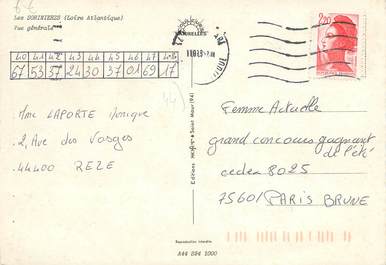 Les SORINIERES (Loire Atlantique)
Vue générale
40 41 42 43 44 45 46 47 48
67 53 37 24 30 37 01 69 17
(44)
Mme LAPORTE Monique
2, Rue des Vosges
44400 REZE
2,20
Femme Actuelle
grand concours gagnant
de l'été
cedex 8025
75601 PARIS BRUNE
Editions
Saint Maur (94)
Reproduction interdite
A44 094 1000